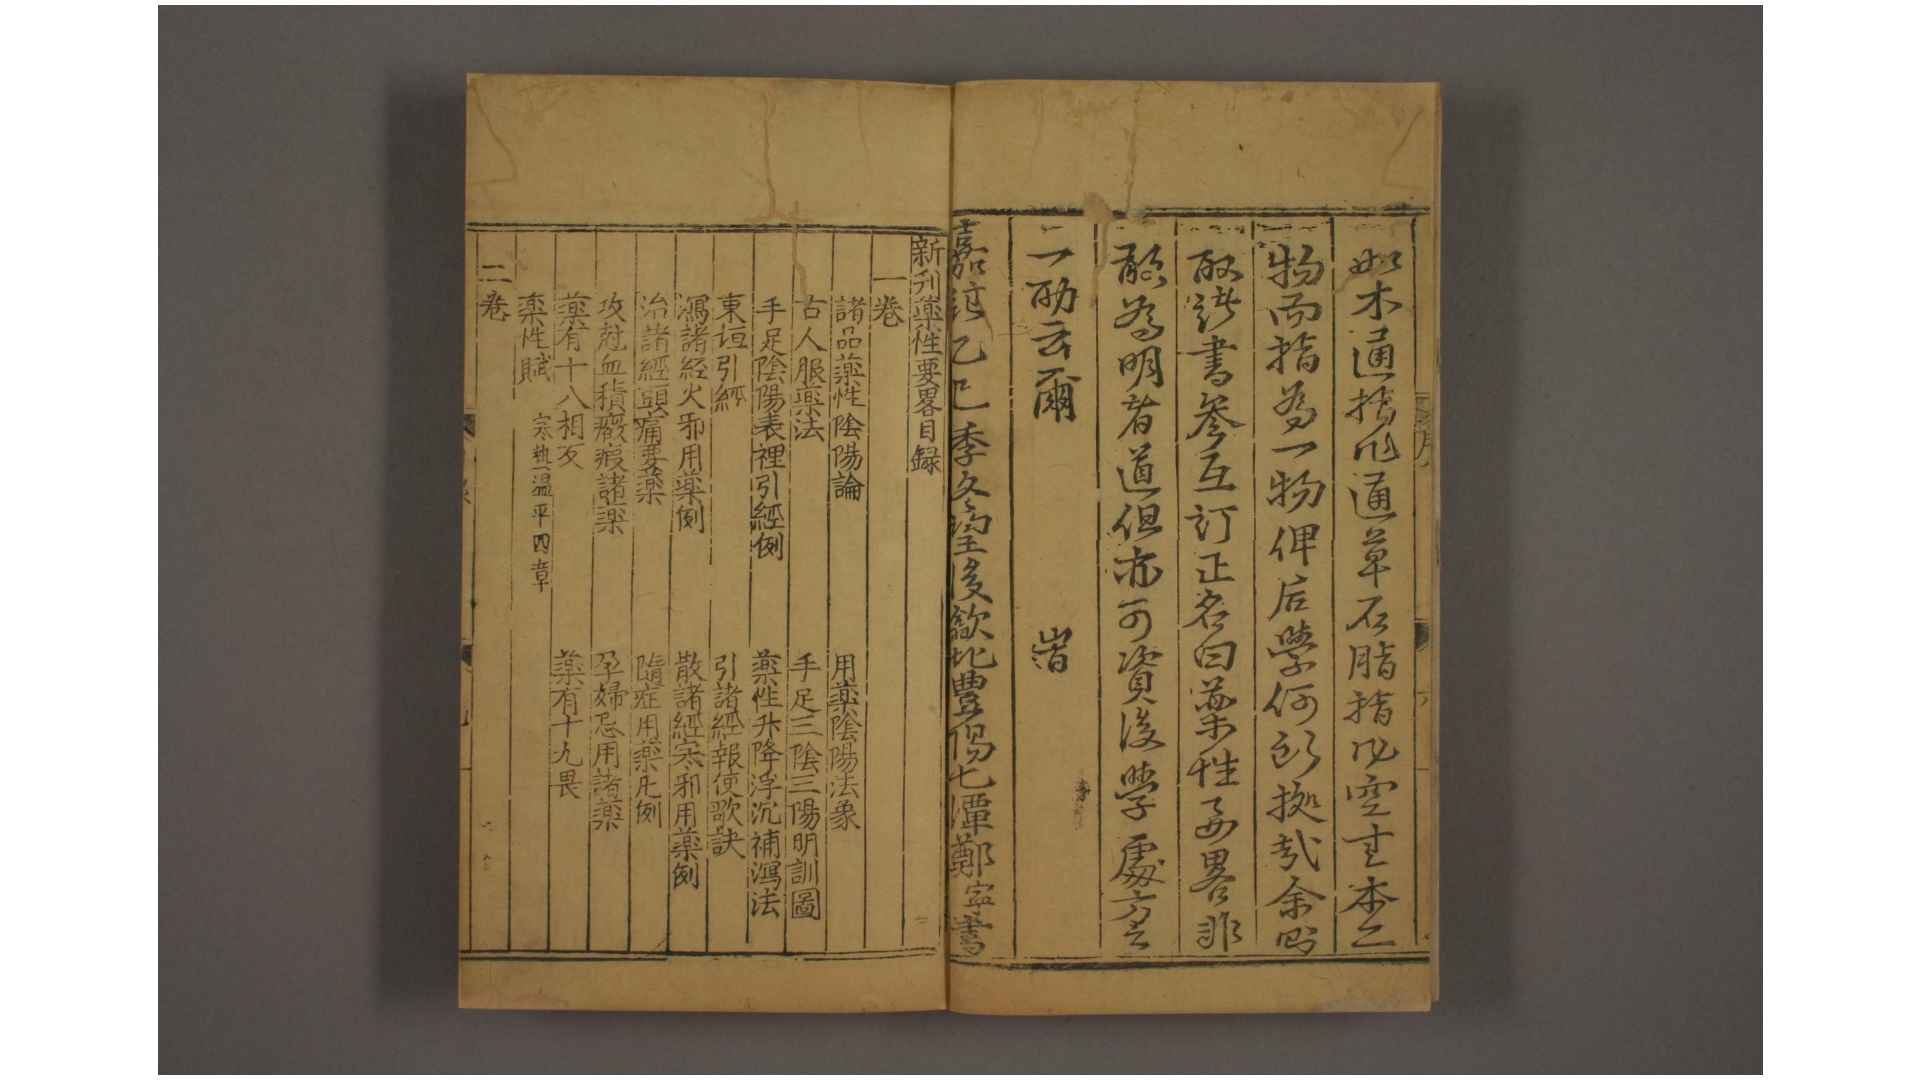 如木通指作通草石脂指作空青本二
物而指為一物俾后學何所據哉余
書叅互訂正名曰藥性要畧非
敢為明者道但亦可資後學處方之
一助云爾
嘉靖乙巳季冬望後歙北豊偈七潭鄭寕書
新刊藥性要畧目録
一卷
諸品藥性陰陽論
用藥陰陽法象
古人服藥法
手足三陰三陽明訓圖
手足陰陽表裡引經例
藥性升降浮沉補瀉法
東垣引經
引諸經報使歌訣
瀉諸经火邪用藥例
散諸經寒邪用藥例
治諸經頭痛要藥
隨症用藥凡例
攻尅血積癥瘕諸藥
孕婦忌用諸藥
藥有十八相反
藥有十九畏
藥性賦
寒熱温平四章
二卷